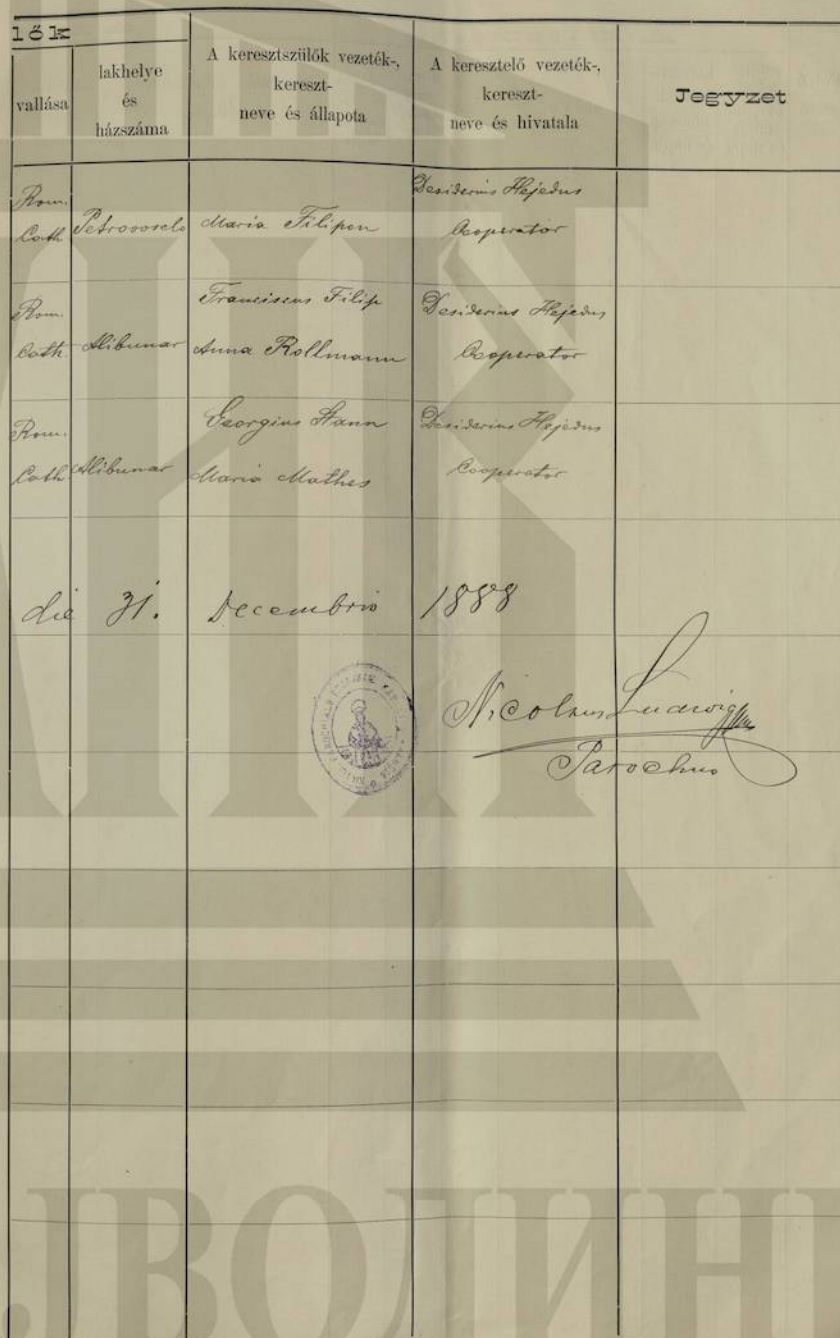 lők
vallása
lakhelye
és
házszáma
A keresztszülők vezeték-,
kereszt-
neve és állapota
A keresztelő vezeték-,
kereszt-
neve és hivatala
Jegyzet
Rom.
Cath
Petrovoselo
Maria Filipon
Desiderius Hejedus
Cooperator
Rom.
Cath.
Alibunar
Franciscus Filip
Anna Rollmann
Desiderius Hejedus
Cooperator
Rom.
Cath
Alibunar
Georgius
Maria Mathes
Desiderius Hejedus
Cooperator
die 31. Decembris 1888
Nicolaus Ludwig
Parochus